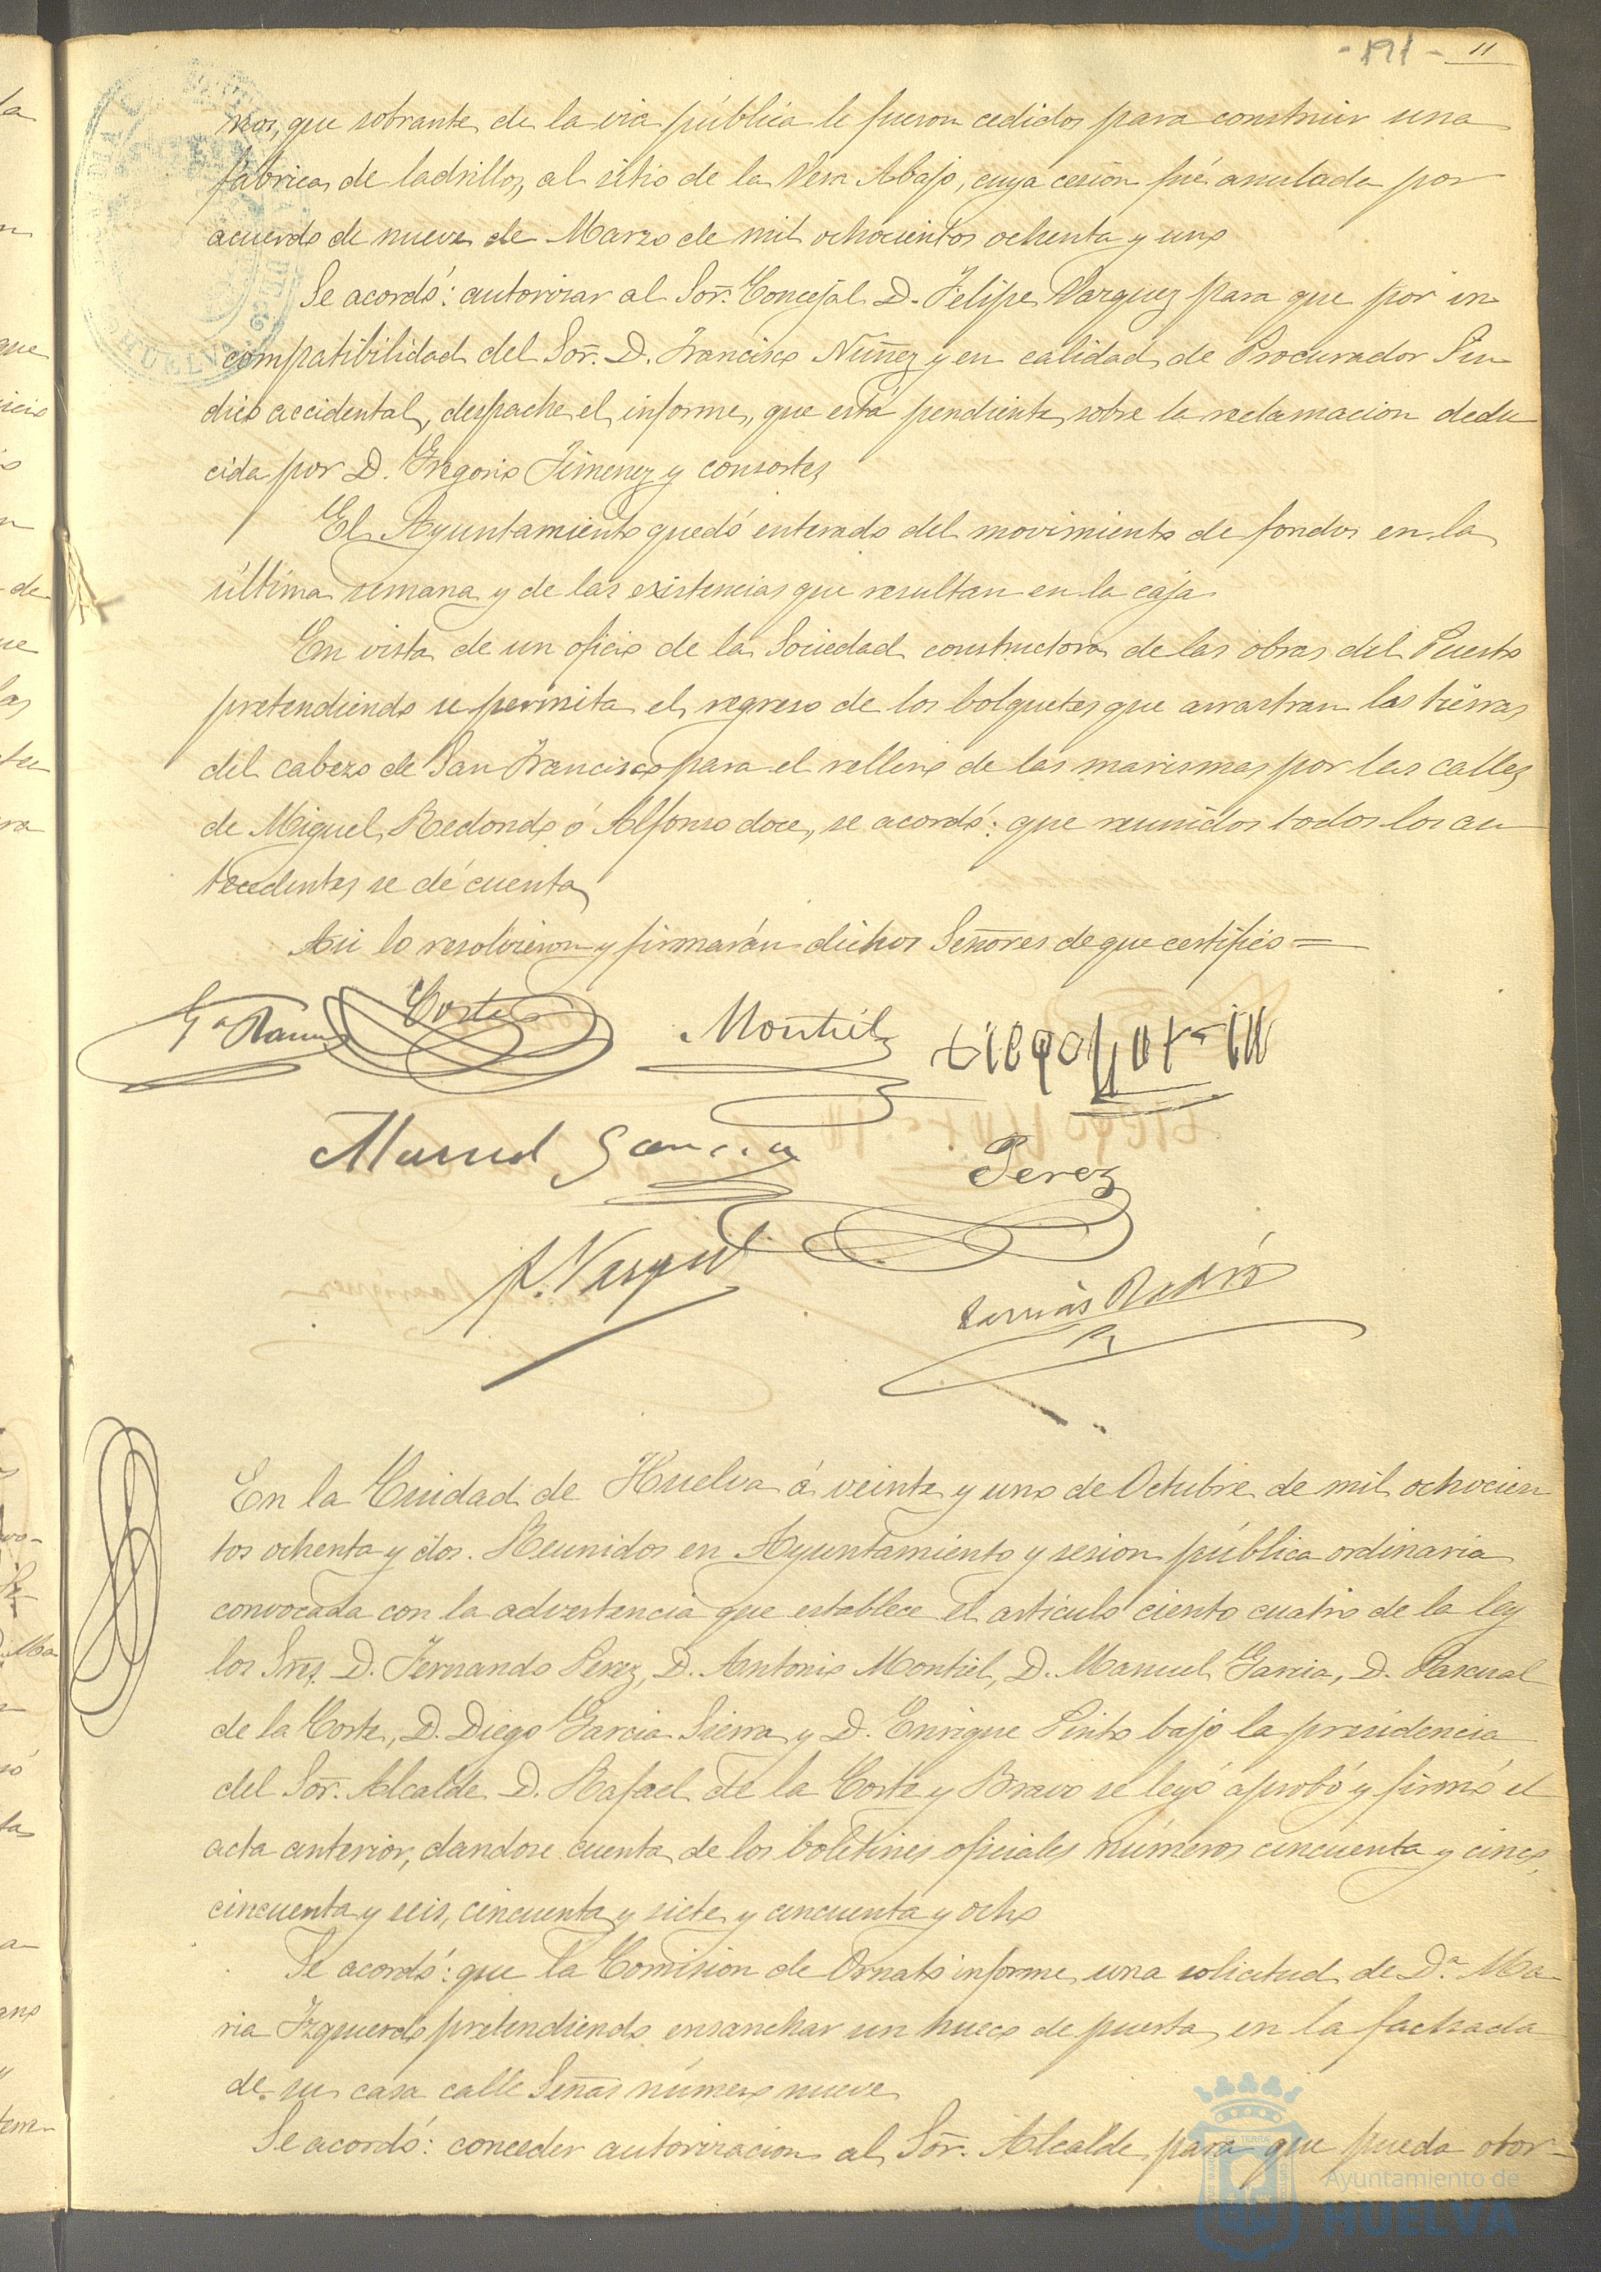 - 191 - 11
nos, que sobrante de la via pública le fueron cedidos para construir una
fábrica de ladrillos, al sitio de la Vera Abajo, cuya cesión fué anulada por
acuerdo de nueve de Marzo de mil ochocientos ochenta y uno
Se acordó: autorizar al Sor. Concejal D. Felipe Vazquez para que por in
compatibilidad del Sor. D. Francisco Nuñez y en calidad de Procurador Sin
dico accidental, despache el informe, que está pendiente, sobre la reclamacion dedu
cida por D. Gregorio Jimenez y consortes
El Ayuntamiento quedó enterado del movimiento de fondos en la
última semana y de las existencias que resultan en la caja
En vista de un oficio de la Sociedad constructora de las obras del Puerto
pretendiendo se permita el regreso de los bolquetes que arrastran las tierras
del cabezo de San Francisco para el relleno de las marismas por las calles
de Miguel Redondo ó Alfonso doce, se acordó: que reunidos todos los an
tecedentes se dé cuenta
Asi lo resolvieron y firmarán dichos Señores de que certifico =
Corte Montiel
Manuel Garcia Perez
F. Vazquez
En la Ciudad de Huelva á veinte y uno de Octubre de mil ochocien
tos ochenta y dos. Reunidos en Ayuntamiento y sesion pública ordinaria
convocada con la advertencia que establece el articulo ciento cuatro de la ley
los Sres. D. Fernando Perez, D. Antonio Montiel, D. Manuel Garcia, D. Pascual
de la Corte, D. Diego Garcia Sierra y D. Enrique Pinto bajo la presidencia
del Sor. Alcalde D. Rafael de la Corte y Bravo se leyó aprobó y firmó el
acta anterior, dandose cuenta de los boletines oficiales números cincuenta y cinco,
cincuenta y seis, cincuenta y siete y cincuenta y ocho
Se acordó: que la Comision de Ornato informe una solicitud de Dª. Ma
ria Izquierdo pretendiendo ensanchar un hueco de puerta en la fachada
de su casa calle Señas número nueve
Se acordó: conceder autorizacion al Sor. Alcalde para que pueda otor-
Ayuntamiento de
HUELVA